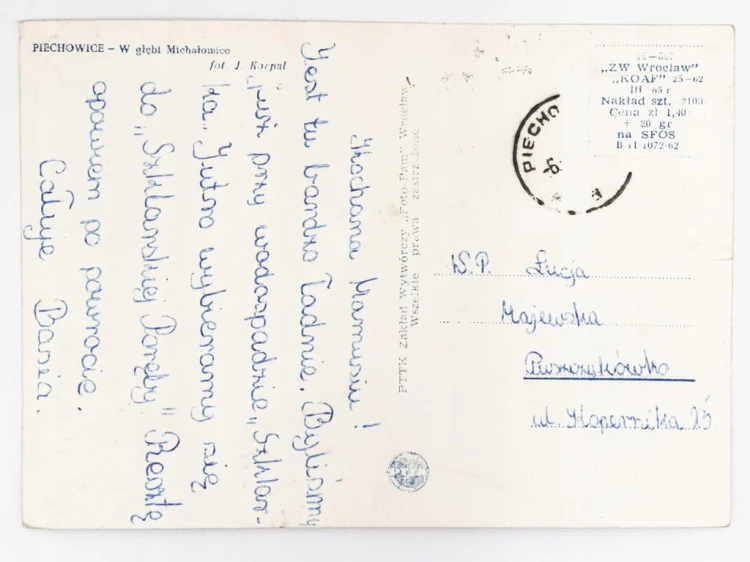 PIECHOWICE – W głębi Michałowice
fot J. Korpal
Kochana Mamusiu!
Jest tu bardzo ładnie. Byliśmy
już przy wodospadzie „Szklar-
ka„ Jutro wybieramy się
do „Szklarskiej Poręby” Resztę
opowiem po powrocie.
Całuję Basia.
PTTK Zakład Wytwórczy „Foto-Pam” Wrocław
Wszelkie prawa zastrzeżone
„ZW Wrocław”
„KOAF” 25-62
III 65 r
Nakład szt. 2100
Cena zł 1,40
+ 20 gr
na SFOS
B 11-1072-62
PIECHO
W.P. Łucja
Majewska
Puszczykówko
ul. Kopernika 25